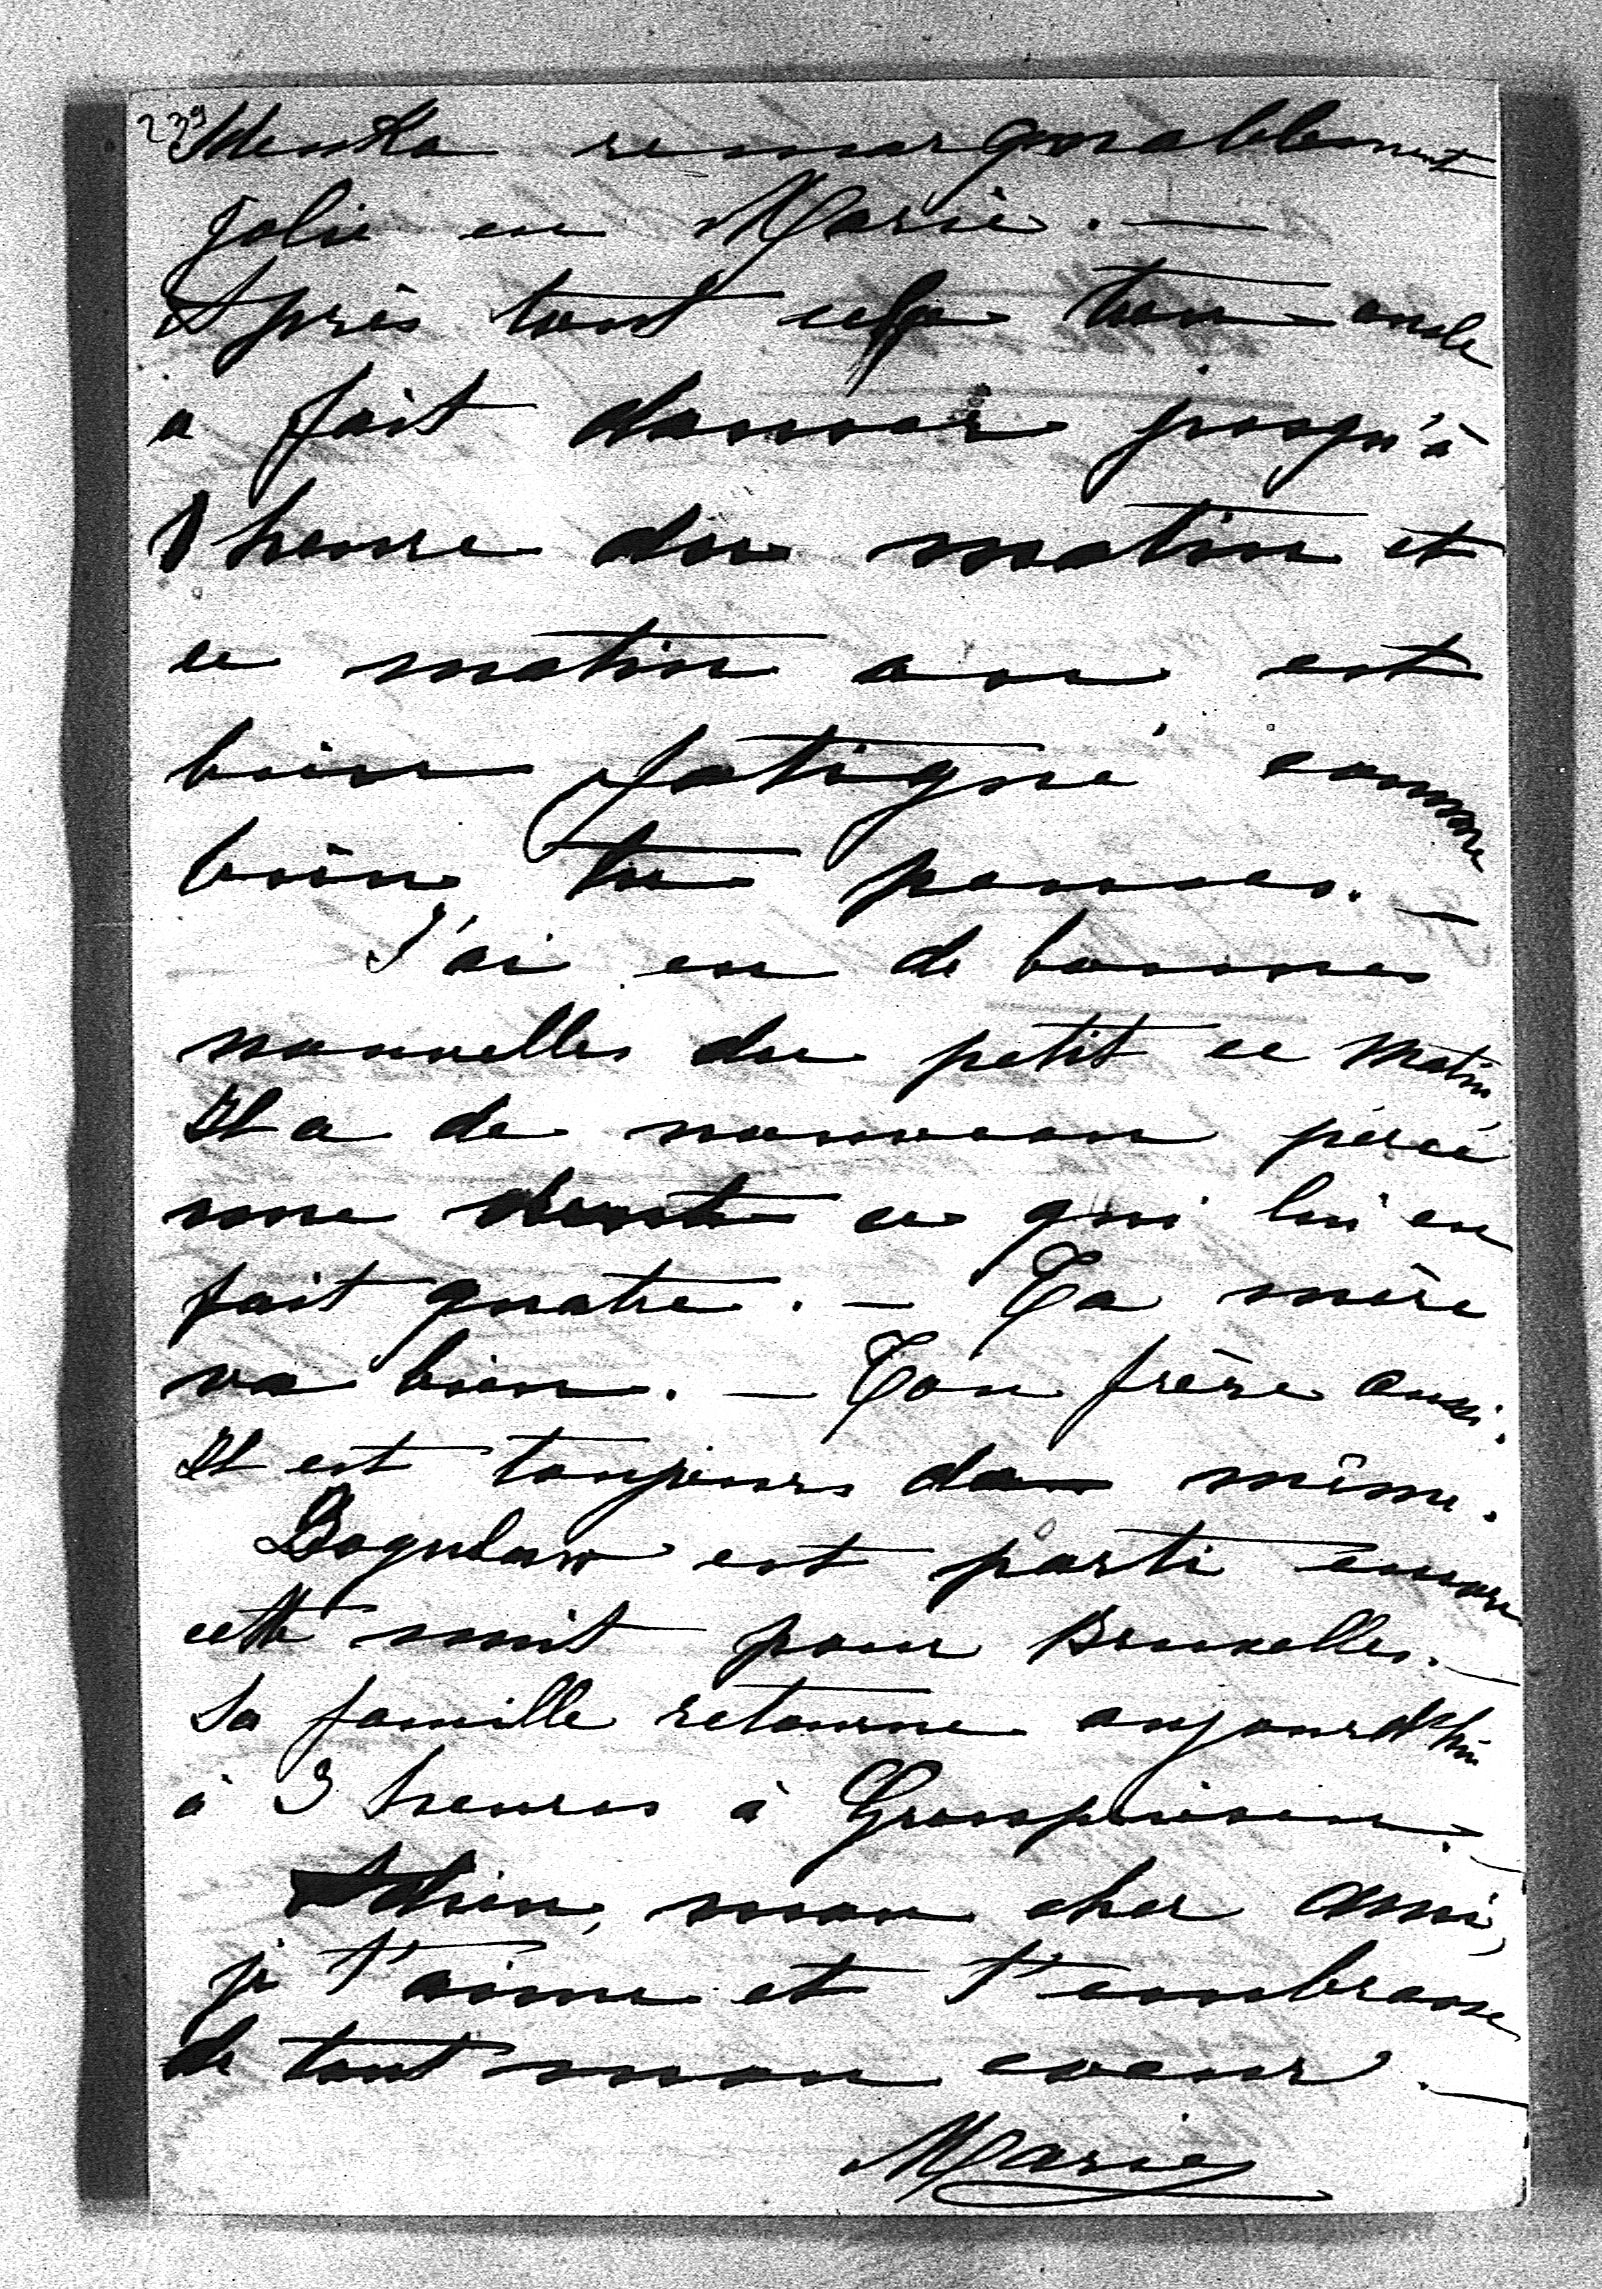 239
Idenka remarquablement
jolie en Marie. —
Après tout cela ton oncle
a fait danser jusqu'à
1 heure du matin et
ce matin on est
bien fatigué comme
bien tu penses. —
J'ai eu de bonnes
nouvelles du petit ce matin,
Il a de nouveau percé
une dent ce qui lui en
fait quatre. — Ta mère
va bien. — Ton frère aussi.
Il est toujours de même.
Boguslaw est parti encore
cette nuit pour Bruxelles. —
Sa famille retourne aujourd'hui
à 3 heures à —
Adieu, mon cher ami,
je t'aime et t'embrasse
de tout mon coeur. —
Marie